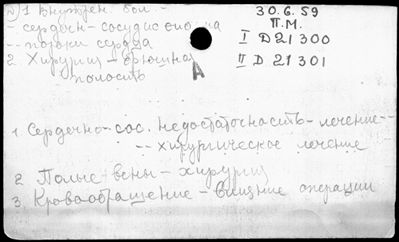 1 Внутрен. бол. -
- сердечн - сосудис
-- пороки сердца
2. Хирургия - брюшная
полость
30.6.59
П.М.
I D 21 300
II D 21 301
A
1. Сердечно-сос. недостаточность - лечение --
-- хирургическое лечение
2 Полые вены - хирургия
3 Кровообращение - влияние операции